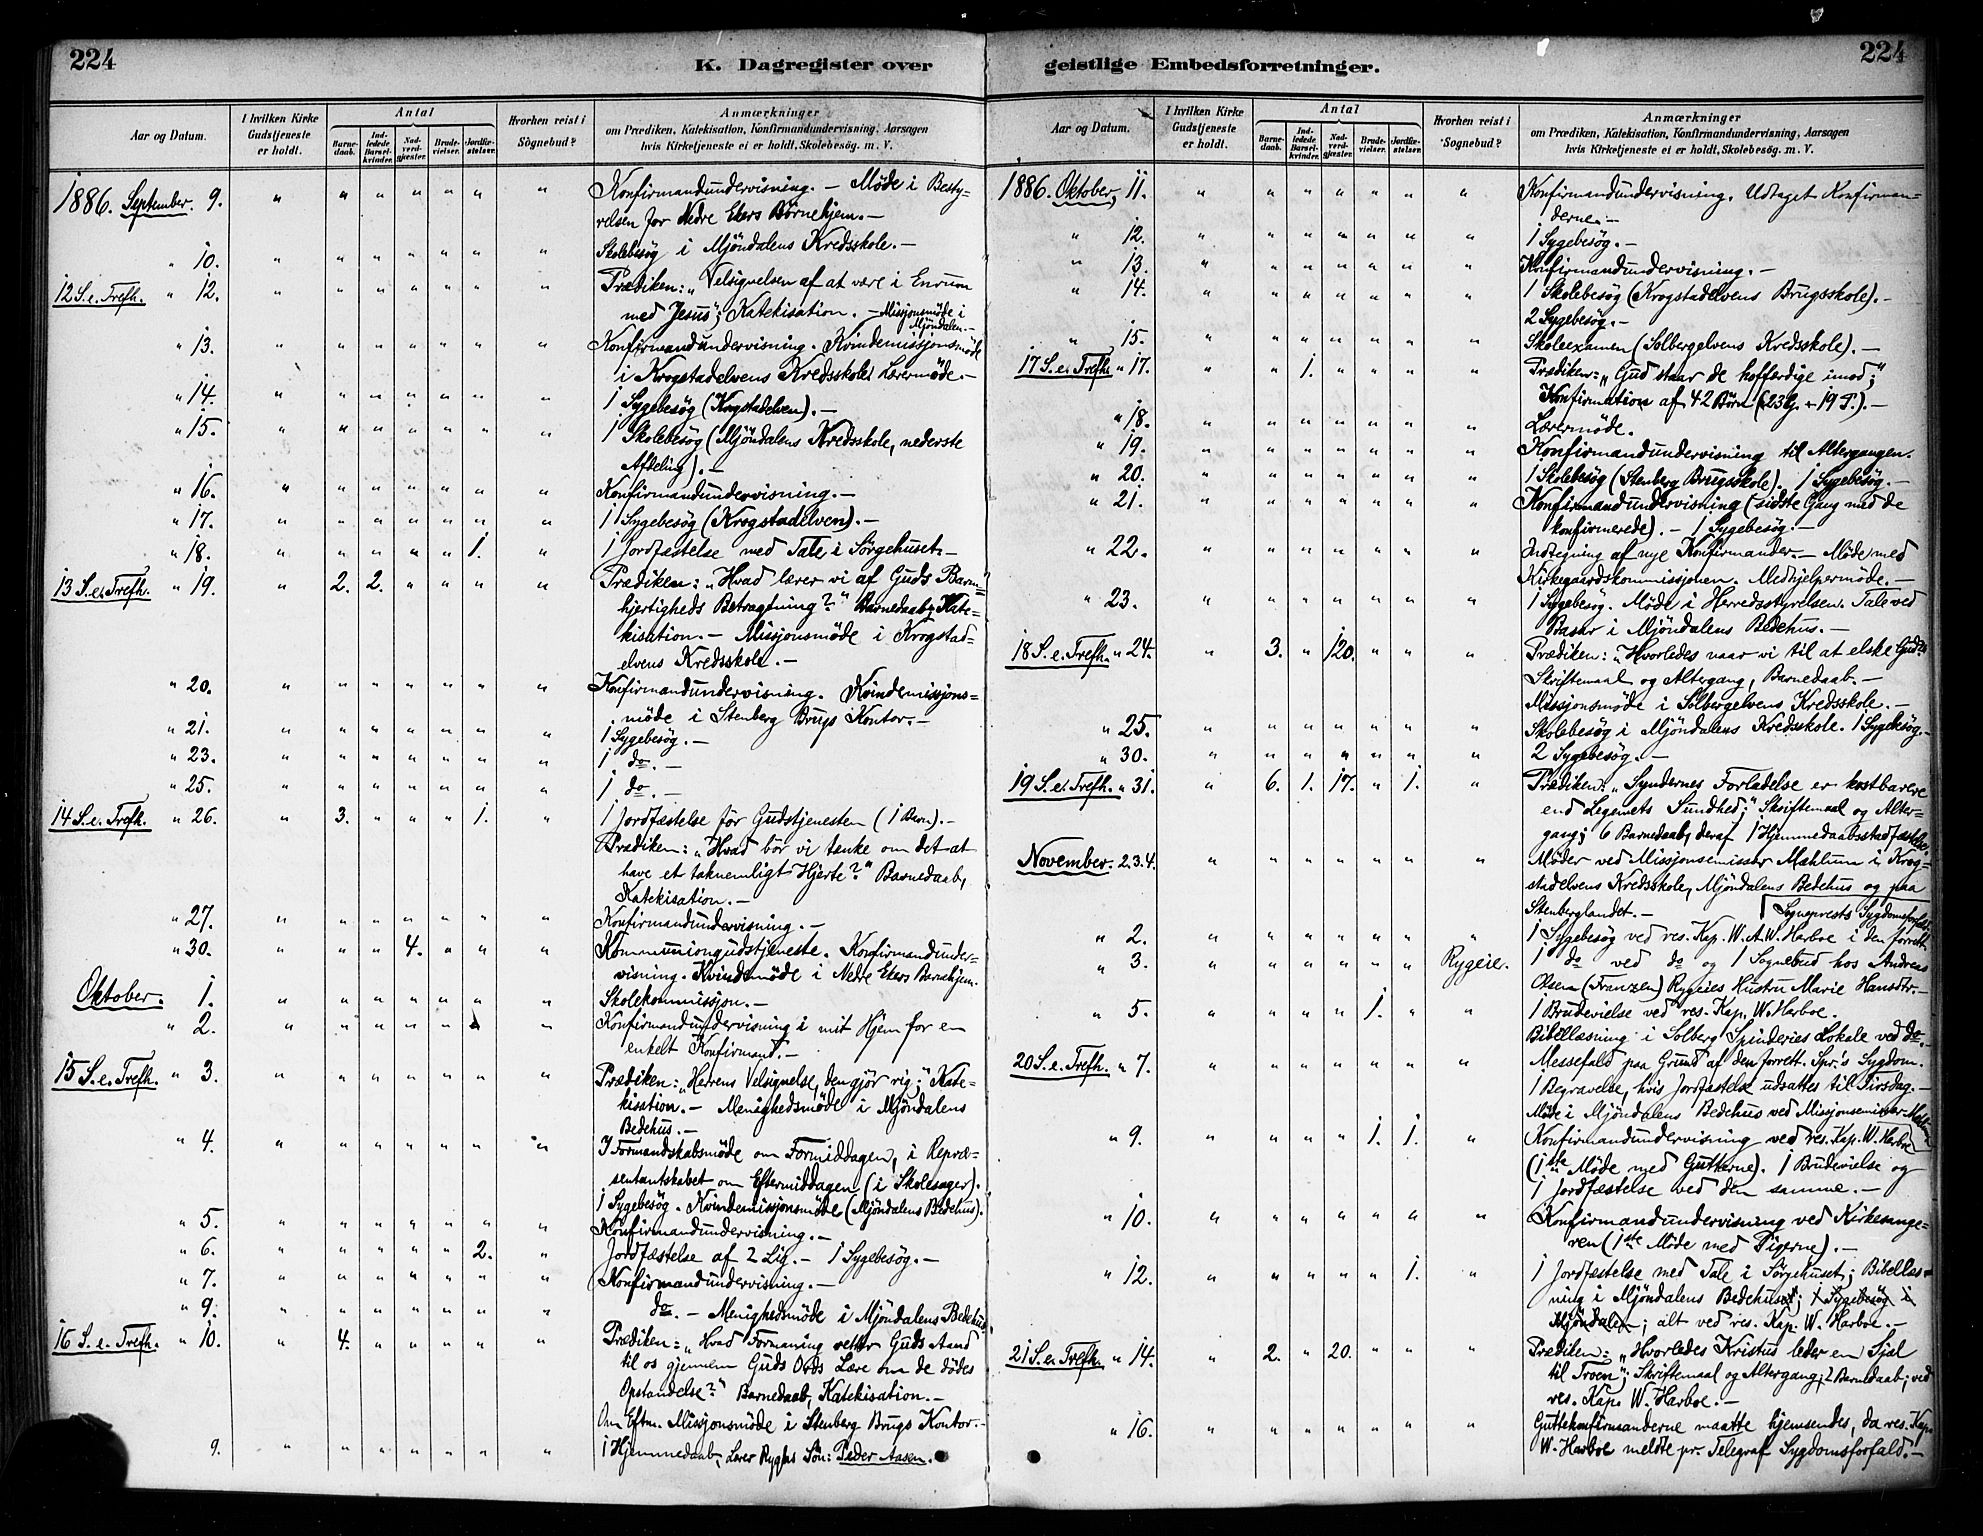 224
K. Dagregister over
Aar og Datum.
I hvilken Kirke Gudstjeneste er holdt.
Antal
Barnedaab.
Indledede Barselkvinder.
Nadverdgjester.
Brudevielser.
Jordfæstelser.
Hvorhen reist i Sognebud?
Anmærkninger
om Prædiken, Katekisation, Konfirmandundervisning, Aarsagen
hvis Kirketjeneste ei er holdt, Skolebesøg. m. V.
1886. September. 9. " " " " " " " Konfirmandundervisning. – Møde i Besty-
relsen for Nedre Ekers Børnehjem. –
" 10. " " " " " " " Skolebesøg i Mjöndalens Kredsskole. –
12 S. e. Trefh. " 12. " " " " " " " Prædiken: „Velsignelsen af at være i Enrum
med Jesus"; Katekisation. – Missjonsmöde i
Mjöndalen. –
" 13. " " " " " " " Konfirmandundervisning. Kvindemissjonsmöde
i Krogstadelvens Kredsskole. Lærermöde. –
" 14. " " " " " " " 1 Sygebesøg (Krogstadelven). –
" 15. " " " " " " " 1 Skolebesøg (Mjöndalens Kredsskole, nederste
Afdeling). –
" 16. " " " " " " " Konfirmandundervisning. –
" 17. " " " " " " " 1 Sygebesøg (Krogstadelven). –
" 18. " " " " " 1. " 1 Jordfæstelse med Tale i Sørgehuset. –
13 S. e. Trefh. " 19. " 2. 2. " " " " Prædiken: „Hvad lærer vi af Guds Barm-
hjertigheds Betragtning?" Barnedaab, Kate-
kisation. – Missjonsmöde i Krogstad-
elvens Kredsskole. –
" 20. " " " " " " " Konfirmandundervisning. Kvindemissjons-
möde i Stenberg Brugs Kontor. –
" 21. " " " " " " " 1 Sygebesøg. –
" 23. " " " " " " " 1 do. –
" 25. " " " " " " " 1 do. –
14 S. e. Trefh. " 26. " 3. " " " 1. " 1 Jordfæstelse før Gudstjenesten (1 Barn). –
Prædiken: „Hvad bör vi tænke om det at
have et taknemligt Hjerte?" Barnedaab,
Katekisation. –
" 27. " " " " " " " Konfirmandundervisning. –
" 30. " " " 4. " " " Kommuniongudstjeneste. Konfirmandunder-
visning. Kvindemöde i Nedre Ekers Barnehjem.
Oktober. 1. " " " " " " " Skolekommissjon. –
" 2. " " " " " " " Konfirmandundervisning i mit Hjem for en
enkelt Konfirmand. –
15 S. e. Trefh. " 3. " " " " " " " Prædiken: „Herrens Velsignelse, den gjør rig;" Kate-
kisation. – Menighedsmöde i Mjöndalens
Bedehus. –
" 4. " " " " " " " I Formandskabsmöde om Formiddagen, i Repræ-
sentantskabet om Eftermiddagen (i Skolesager).
1 Sygebesøg. Kvindemissjonsmöde (Mjöndalens Bedehus).
" 5. " " " " " " " Konfirmandundervisning. –
" 6. " " " " " 2. " Jordfæstelse af 2 Lig. – 1 Sygebesøg. –
" 7. " " " " " " " Konfirmandundervisning. –
" 9. " " " " " " " do. – Menighedsmöde i Mjöndalens Bedehus.
16 S. e. Trefh. " 10. " 4. " " " " " Prædiken: „Hvad Formaning retter Guds Aand
til os gjennem Guds Ords Lære om de dödes
Opstandelse?" Barnedaab, Katekisation. –
Om Eftm. Missjonsmöde i Stenberg Brugs Kontor. –
9. " " " " " " " 1 Hjemmedaab, Lærer Ryghs Søn: Peder Aasen.
geistlige Embedsforretninger.
224
Aar og Datum.
I hvilken Kirke Gudstjeneste er holdt.
Antal
Barnedaab.
Indledede Barselkvinder.
Nadverdgjester.
Brudevielser.
Jordfæstelser.
Hvorhen reist i Sognebud?
Anmærkninger
om Prædiken, Katekisation, Konfirmandundervisning, Aarsagen
hvis Kirketjeneste ei er holdt, Skolebesøg. m. V.
1886. Oktober, 11. " " " " " " " Konfirmandundervisning. Udtaget Konfirman-
derne. –
" 12. " " " " " " " 1 Sygebesøg. –
" 13. " " " " " " " Konfirmandundervisning. –
" 14. " " " " " " " 1 Skolebesøg (Krogstadelvens Brugsskole). –
2 Sygebesøg. –
" 15. " " " " " " " Skoleexamen (Solbergelvens Kredsskole). –
17 S. e. Trefh. " 17. " " 1. " " " " Prædiken: „Gud staar de hoffærdige imod;"
Konfirmation af 42 Børn (23 G. + 19 P.). –
" 18. " " " " " " " Lærermöde.
" 19. " " " " " " " Konfirmandundervisning til Altergangen.
" 20. " " " " " " " 1 Skolebesøg (Stenberg Brugsskole). 1 Sygebesøg. –
" 21. " " " " " " " Konfirmandundervisning (sidste Gang med de
konfirmerede). – 1 Sygebesøg. –
" 22. " " " " " " " Indtegning af nye Konfirmander. – Møde med
Kirkegaardskommissjonen. Medhjelpermöde. –
" 23. " " " " " " " 1 Sygebesøg. Møde i Herredsstyrelsen. Tale ved
Basar i Mjöndalens Bedehus. –
18 S. e. Trefh. " 24. " 3. " 120. " " " Prædiken: „Hvorledes naar vi til at elske Gud?"
Skriftemaal og Altergang, Barnedaab. –
Missjonsmöde i Solbergelvens Kredsskole. –
" 25. " " " " " " " Skolebesøg i Mjöndalens Kredsskole. 1 Sygebesøg. –
" 30. " " " " " " " 2 Sygebesøg. –
19 S. e. Trefh. " 31. " 6. 1. 17. " 1. " Prædiken: „Syndernes Forladelse er kostbarere
end Legemets Sundhed;" Skriftemaal og Alter-
gang; 6 Barnedaab, deraf 1 Hjemmedaabsstadfæstelse.
November. 2.3.4. " " " " " " " Møder ved Missjonsemissær Mæhlum i Krog-
stadelvens Kredsskole, Mjöndalens Bedehus og paa
Stenberglandet. – Sogneprests Sygdomsforfald.
" 2. " " " " " " " 1 Sygebesøg ved res. Kap. W. A. W. Harboe i den forrett.
" 3. " " " " " " Rygeie. 1 do ved do og 1 Sognebud hos Andreas
Olsen (Franzen) Rygeies Hustru Marie Hansdtr. –
" 5. " " " " 1. " " 1 Brudevielse ved res. Kap. W. Harboe.
Bibellæsning i Solberg Spinderies Lokale ved do. –
20 S. e. Trefh. " 7. " " " " " " " Messefald paa Grund af den forrett. Spr.'s Sygdom.
1 Begravelse, hvis Jordfæstelse udsattes til Tirsdag. –
Møde i Mjöndalens Bedehus ved Missjonsemissær Mæhlum.
" 9. " " " " 1. 1. " Konfirmandundervisning ved res. Kap. W. Harboe
(1ste Møde med Gutterne). 1 Brudevielse og
1 Jordfæstelse ved den samme. –
" 10. " " " " " " " Konfirmandundervisning ved Kirkesange-
ren (1ste Møde med Pigerne). –
" 12. " " " " " 1. " 1 Jordfæstelse med Tale i Sørgehuset; Bibellæs-
ning i Mjöndalens Bedehuset; 1 Sygebesøg i
Mjöndalen; alt ved res. Kap. W. Harboe. –
21 S. e. Trefh. " 14. " 2. " 20. " " " Prædiken: „Hvorledes Kristus leder en Sjæl
til Troen"; Skriftemaal og Altergang, 2 Barnedaab; ved
res. Kap. W. Harboe. –
" 16. " " " " " " " Guttekonfirmanderne maatte hjemsendes, da res. Kap.
W. Harboe meldte pr. Telegraf Sygdomsforfald. –